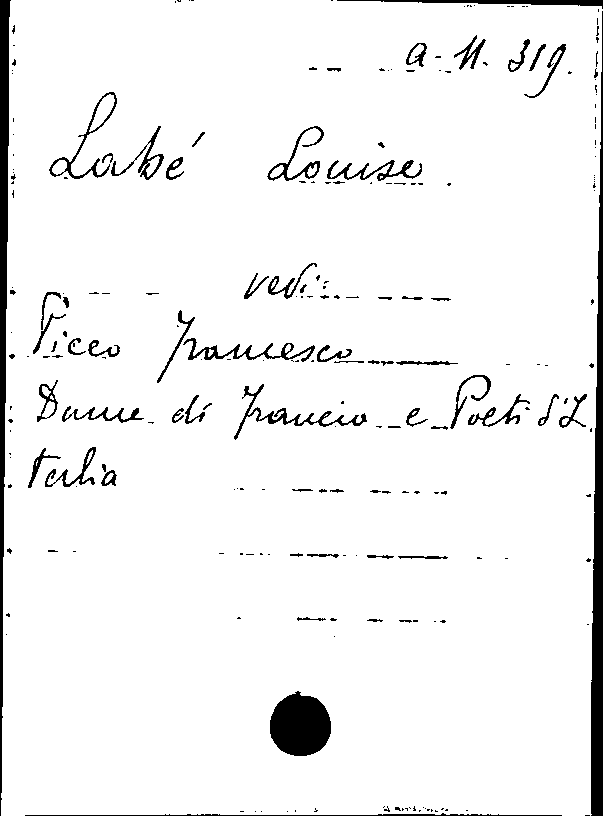 a. 11. 319.
Labé Louise.
vedi:
Picco Francesco
Dame di Francia e Poeti d'I
talia